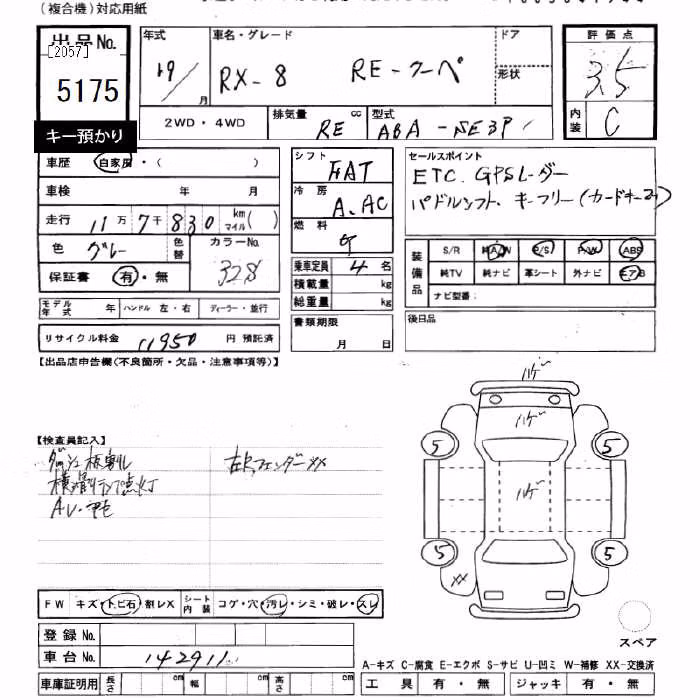 (複合機)対応用紙
出品No.
[2057]
5175
キー預かり
年式
19/
月
車名・グレード
RX-8 RE-クーペ
ドア
形状
評価点
3.5
内装
C
2WD・4WD
排気量
cc
RE
型式
ABA-SE3P
車歴 自家用・( )
車検 年 月
走行 11万7千830 km マイル( )
色 グレー
色替
カラーNo.
32S
保証書 有・無
モデル年式 年 ハンドル 左・右 ディーラー・並行
リサイクル料金 11950 円 預託済
シフト
FAT
冷房
A.AC
燃料
ガ
乗車定員 4 名
積載量 kg
総重量 kg
書類期限
月 日
セールスポイント
ETC. GPSレーダー
パドルシフト. キーフリー(カードキー2)
装備品
S/R 純A/W P/S P/W ABS
純TV 純ナビ 革シート 外ナビ エアB
ナビ型番:
後日品
【出品店申告欄(不良箇所・欠品・注意事項等)】
【検査員記入】
ダッシュ板割れ
横滑りランプ点灯
左Fフェンダー XX
ハゲ
ハゲ
ハゲ
5
5
5
5
XX
FW キズ・トビ石・割レX シート内装 コゲ・穴・汚レ・シミ・破レ・スレ
登録 No.
車台 No. 142911
車庫証明用 長さ cm 幅 cm 高さ cm
スペア
A-キズ C-腐食 E-エクボ S-サビ U-凹ミ W-補修 XX-交換済
工具 有・無 ジャッキ 有・無